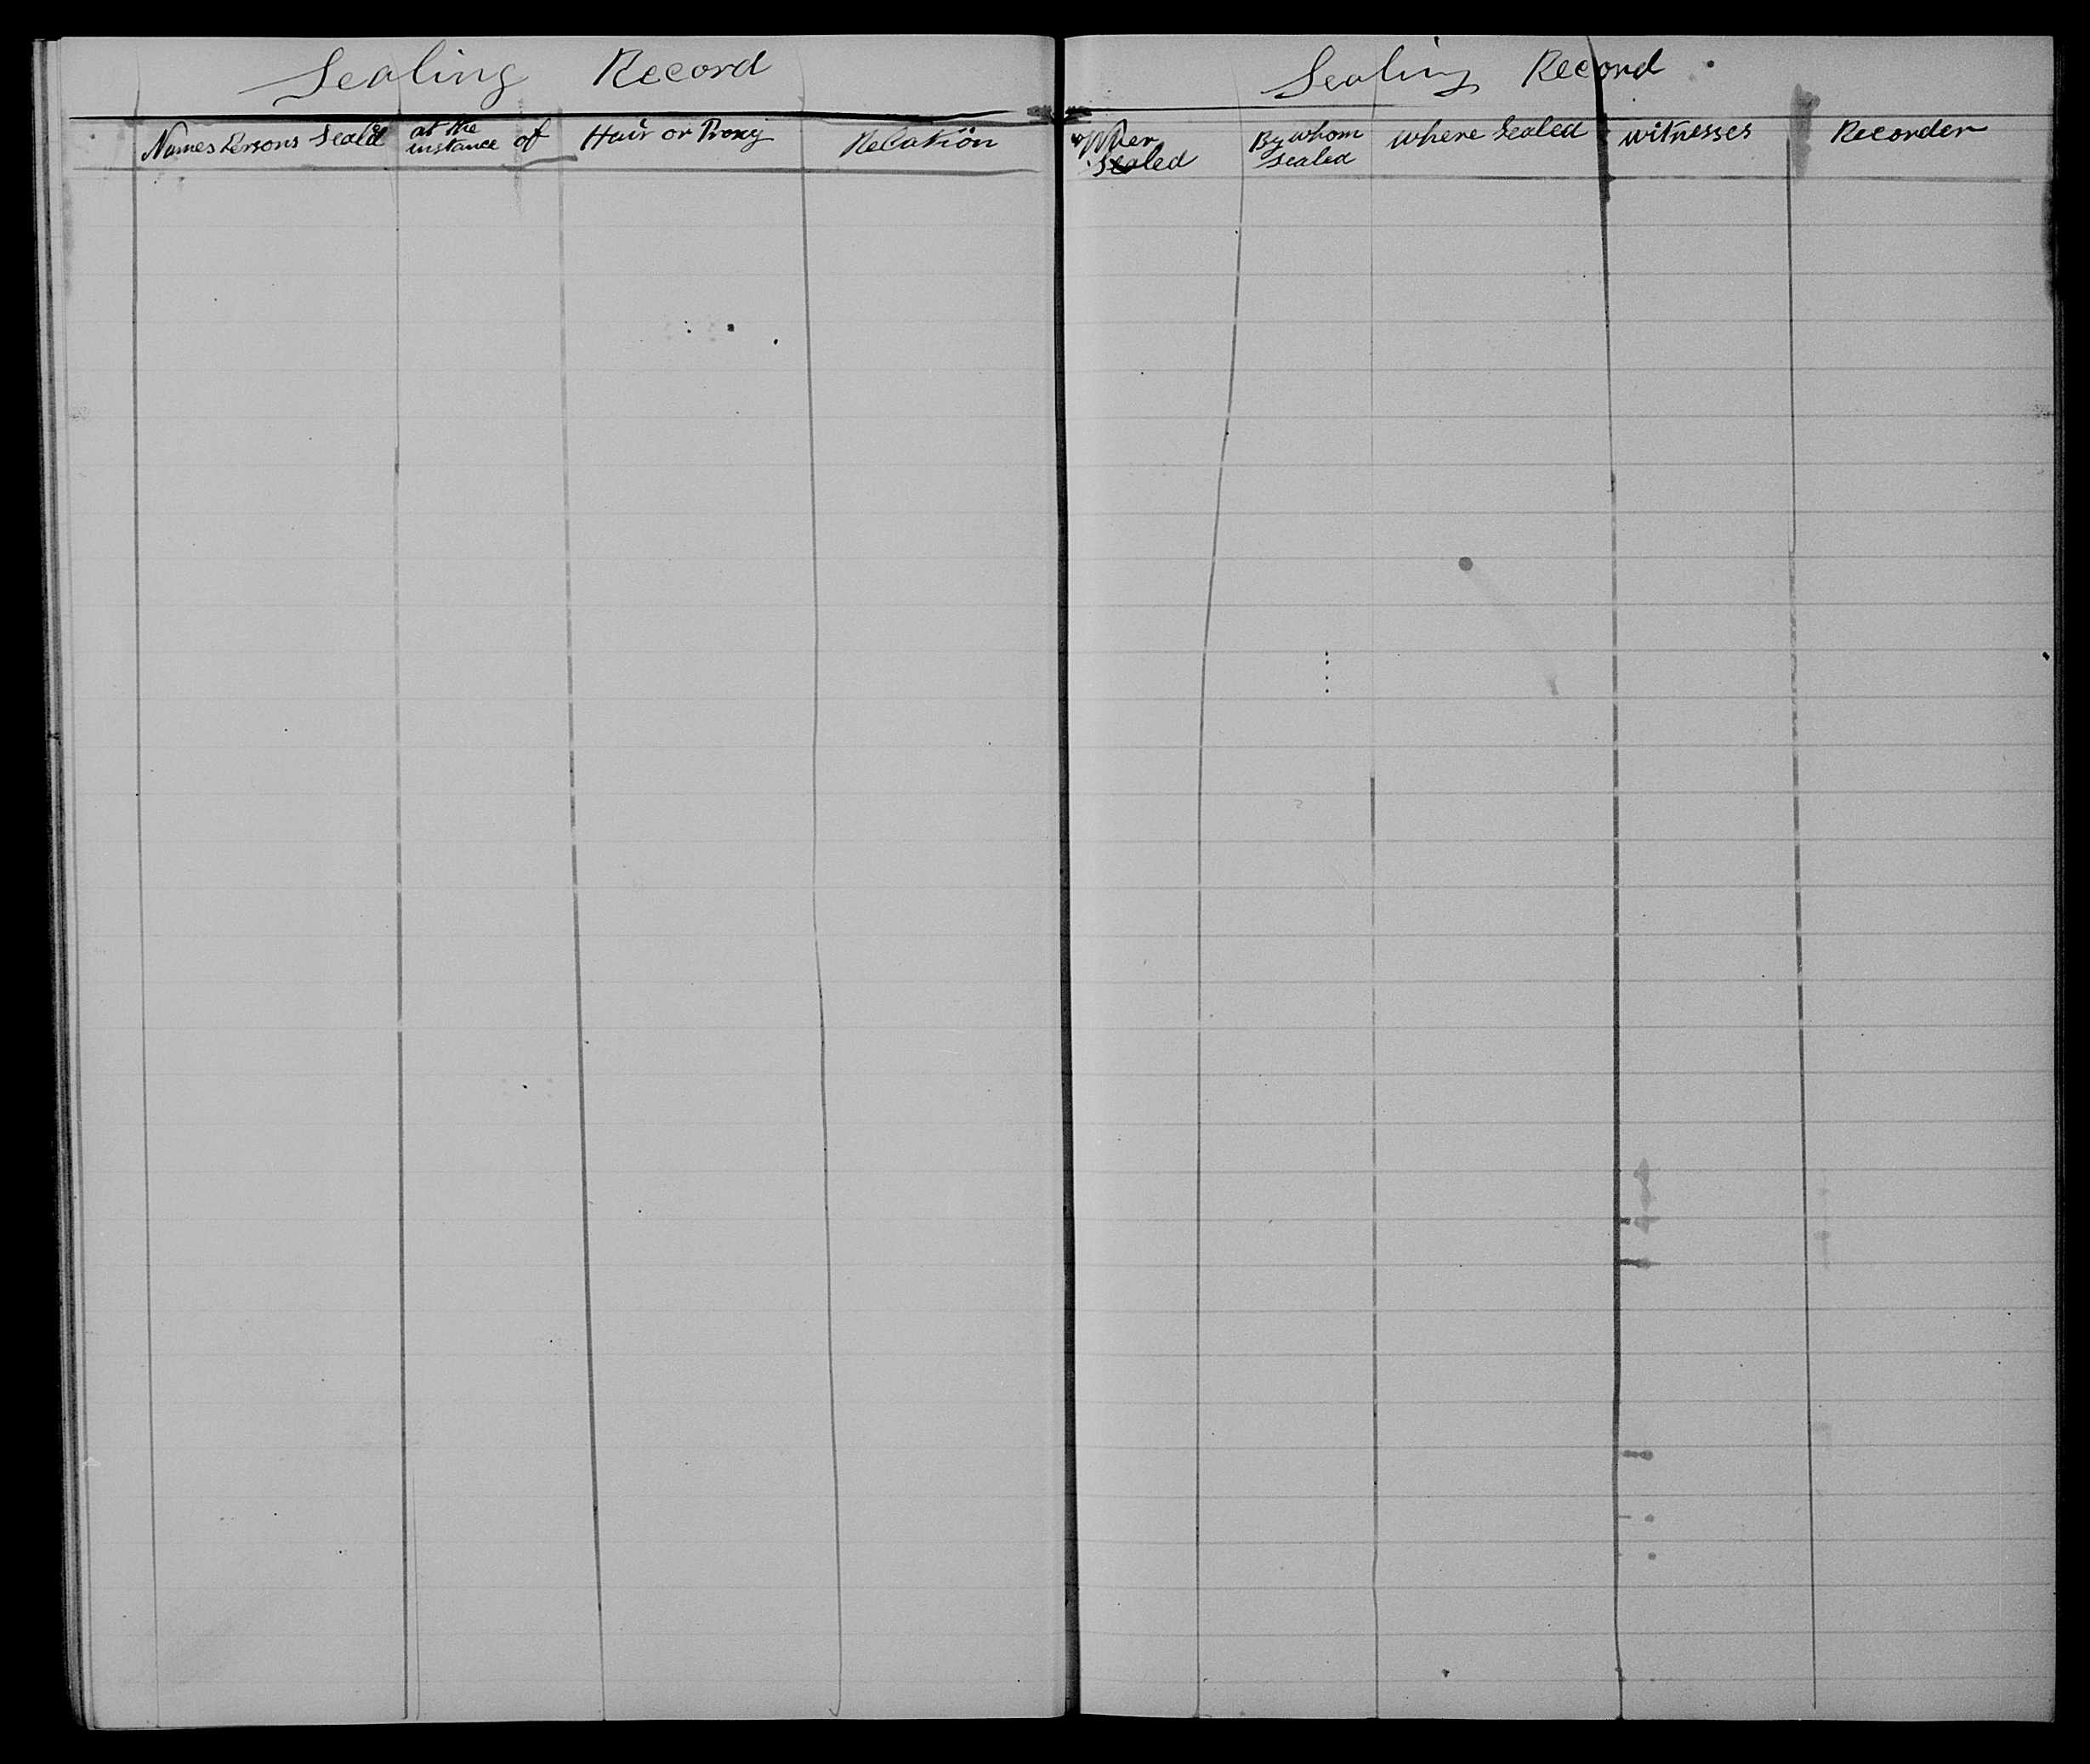 Sealing Record
Names Persons Seald
at the
instance of
Hair or Proxy
Relation
Sealing Record
When
Sealed
By whom
sealed
where Sealed
witnesses
Recorder